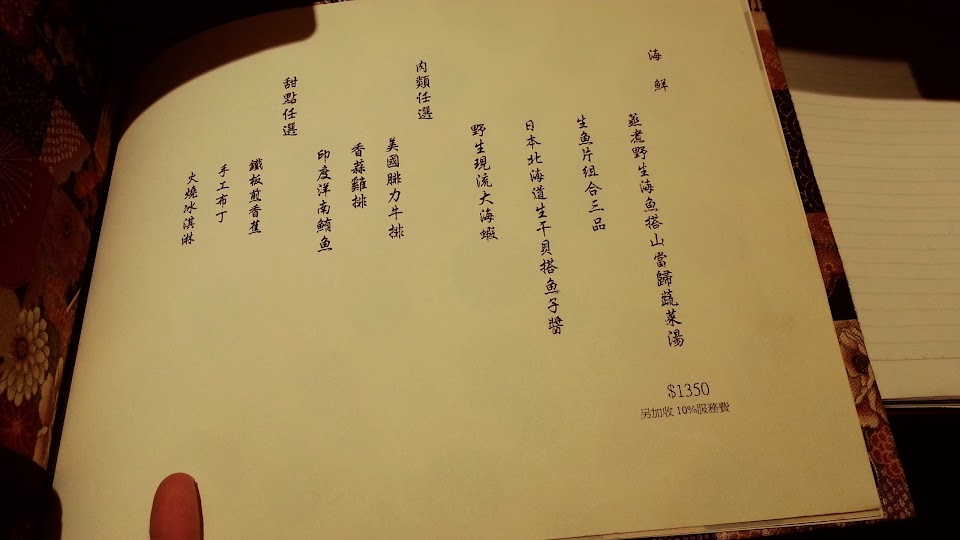 海鮮
蒸煮野生海魚搭山當歸蔬菜湯
生魚片組合三品
日本北海道生干貝搭魚子醬
野生現流大海蝦
肉類任選
美國腓力牛排
香蒜雞排
印度洋南鮪魚
甜點任選
鐵板煎香蕉
手工布丁
火燒冰淇淋
$1350
另加收 10%服務費